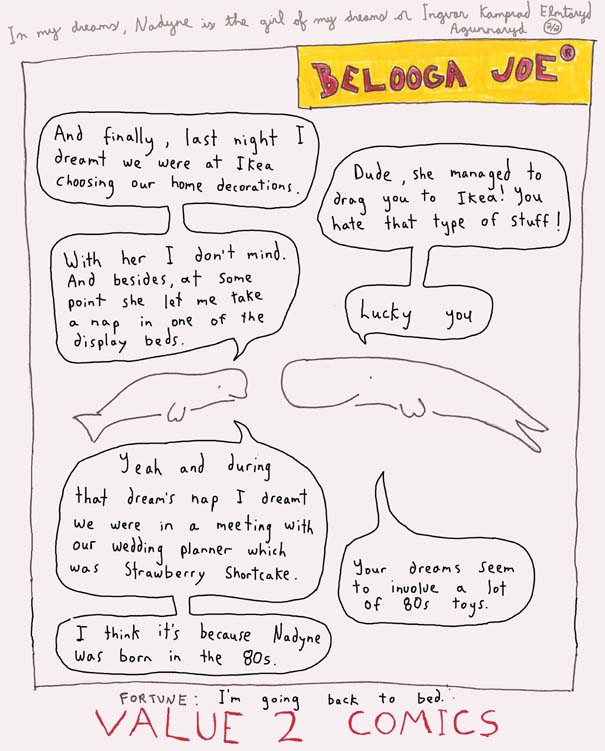 In my dreams, Nadyne is the girl of my dreams or Ingvar Kamprad Elmtaryd
Agunnaryd 2/2
BELOOGA JOE®
And finally, last night I
dreamt we were at Ikea
choosing our home decorations.
Dude, she managed to
drag you to Ikea! You
hate that type of stuff!
With her I don't mind.
And besides, at some
point she let me take
a nap in one of the
display beds.
Lucky you
Yeah and during
that dream's nap I dreamt
we were in a meeting with
our wedding planner which
was Strawberry Shortcake.
Your dreams seem
to involve a lot
of 80s toys.
I think it's because Nadyne
was born in the 80s.
FORTUNE: I'm going back to bed..
VALUE 2 COMICS